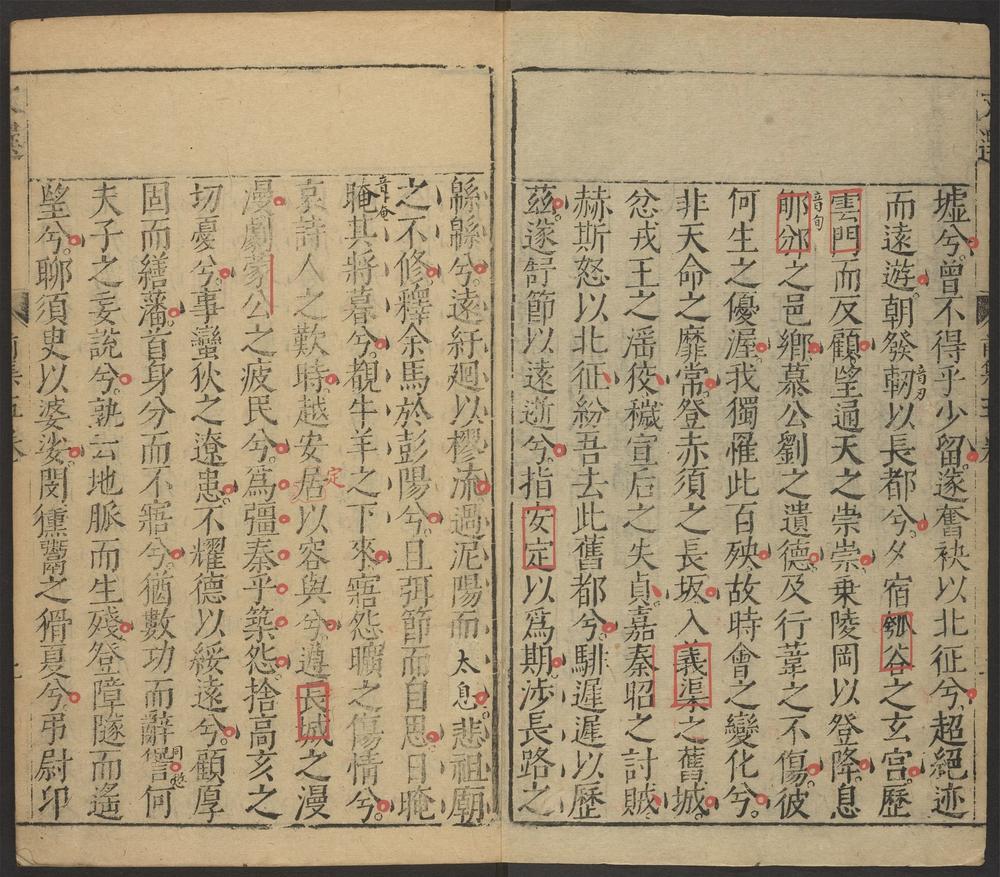 墟兮曾不得乎少留遂奮袂以北征兮超絕迹
而遠遊朝發軔音刃以長都兮夕宿瓠谷之玄宮歷
雲門而反顧望通天之崇崇乘陵岡以登降息
郇音旬邠之邑鄉慕公劉之遺德及行葦之不傷彼
何生之優渥我獨罹此百殃故時會之變化兮
非天命之靡常登赤須之長坂入義渠之舊城
忿戎王之淫狡穢宣后之失貞嘉秦昭之討賊
赫斯怒以北征紛吾去此舊都兮騑遲遲以歷
茲遂舒節以遠逝兮指安定以爲期涉長路之
緜緜兮遠紆迴以樛流過泥陽而太息兮悲祖廟
之不修釋余馬於彭陽兮且弭節而自思日晻
晻音奄其將暮兮覩牛羊之下來寤怨曠之傷情兮
哀詩人之歎時越安居定以容與兮遵長城之漫
漫劇蒙公之疲民兮爲彊秦乎築怨捨高亥之
切憂兮事蠻狄之遼患不耀德以綏遠兮顧厚
固而繕藩首身分而不寤兮猶數功而辭諐同愆何
夫子之妄說兮孰云地脈而生殘登障隧而遙
望兮聊須臾以婆娑閔獯鬻之猾夏兮弔尉卭
文選